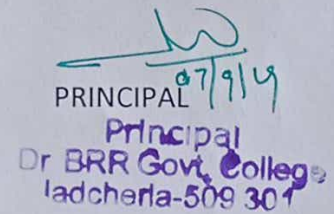 07/9/19
PRINCIPAL
Principal
Dr BRR Govt. College
Jadcherla-509 301